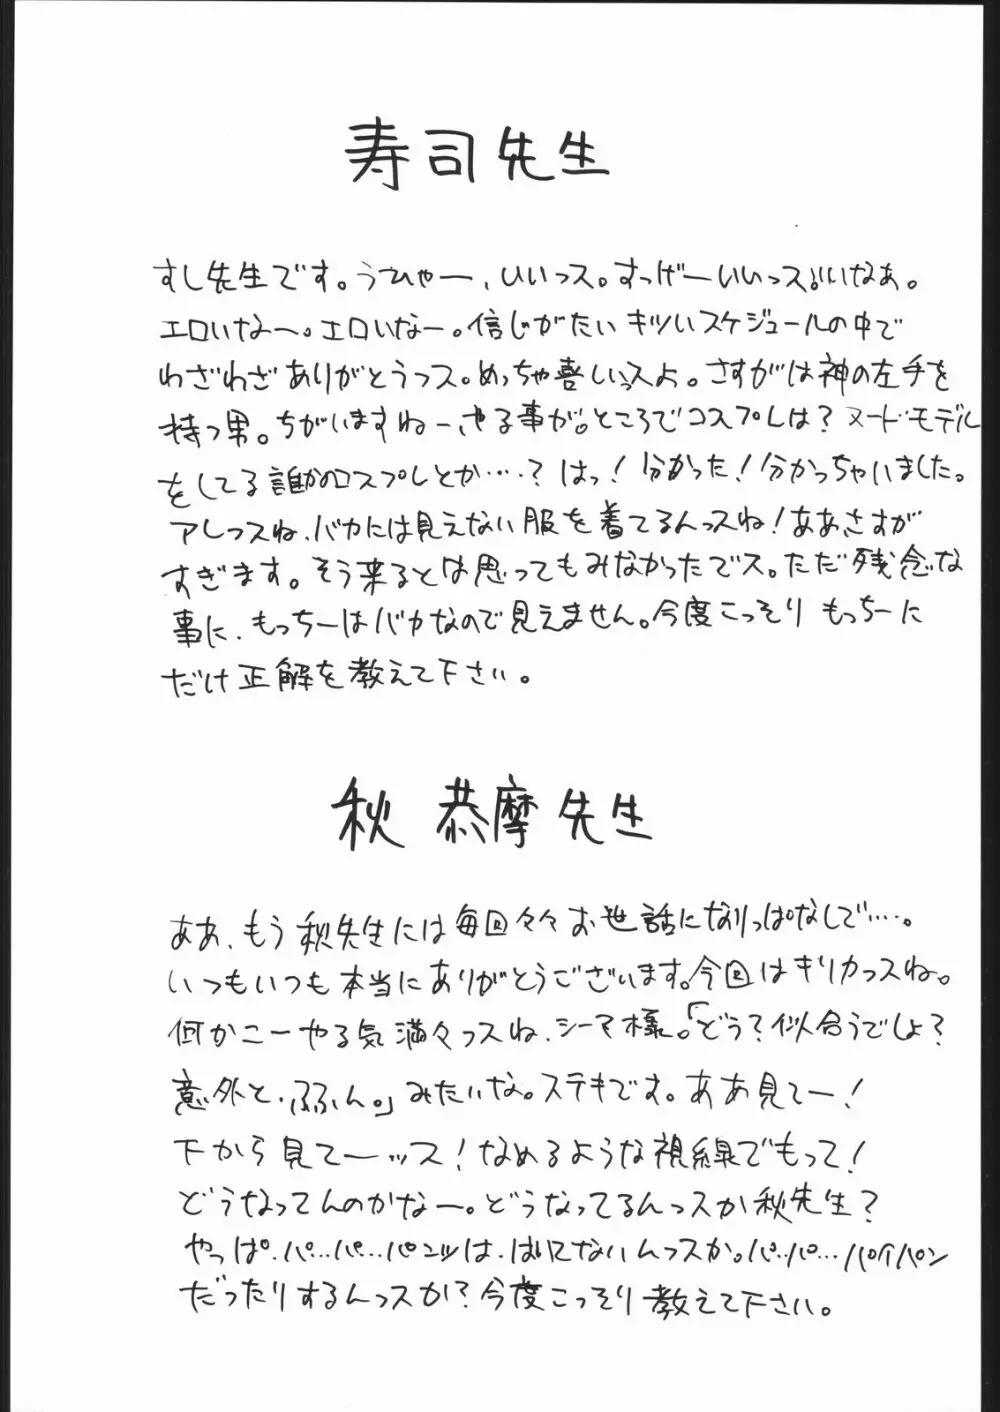 寿司先生
すし先生です。うひゃー、いいっス。すっげーいいっス。いいなぁ。
エロいなー。エロいなー。信じがたいキツいスケジュールの中で
わざわざありがとうっス。めっちゃ喜しいっスよ。さすがは神の左手を
持つ男。ちがいますねーやる事が。ところでコスプレは？ヌードモデル
をしてる誰かのコスプレとか…．？はっ！分かった！分かっちゃいました。
アレっスね、バカには見えない服を着てるんっスね！ああさすが
すぎます。そう来るとは思ってもみなかったでス。ただ残念な
事に、もっちーはバカなので見えません。今度こっそりもっちーに
だけ正解を教えて下さい。
秋 恭摩先生
ああ、もう秋先生には毎回々々お世話になりっぱなしで…．。
いつもいつも本当にありがとうございます。今回はキリカっスね。
何かこーやる気満々っスね、シーマ様。「どう？似合うでしょ？
意外と、ふふん。」みたいな。ステキです。ああ見てー！
下から見てーッス！なめるような視線でもって！
どうなってんのかなー。どうなってるんっスか秋先生？
やっぱ、パ…パ…パンツは、はいてないんっスか。パ…パ…パイパン
だったりするんっスか？今度こっそり教えて下さい。